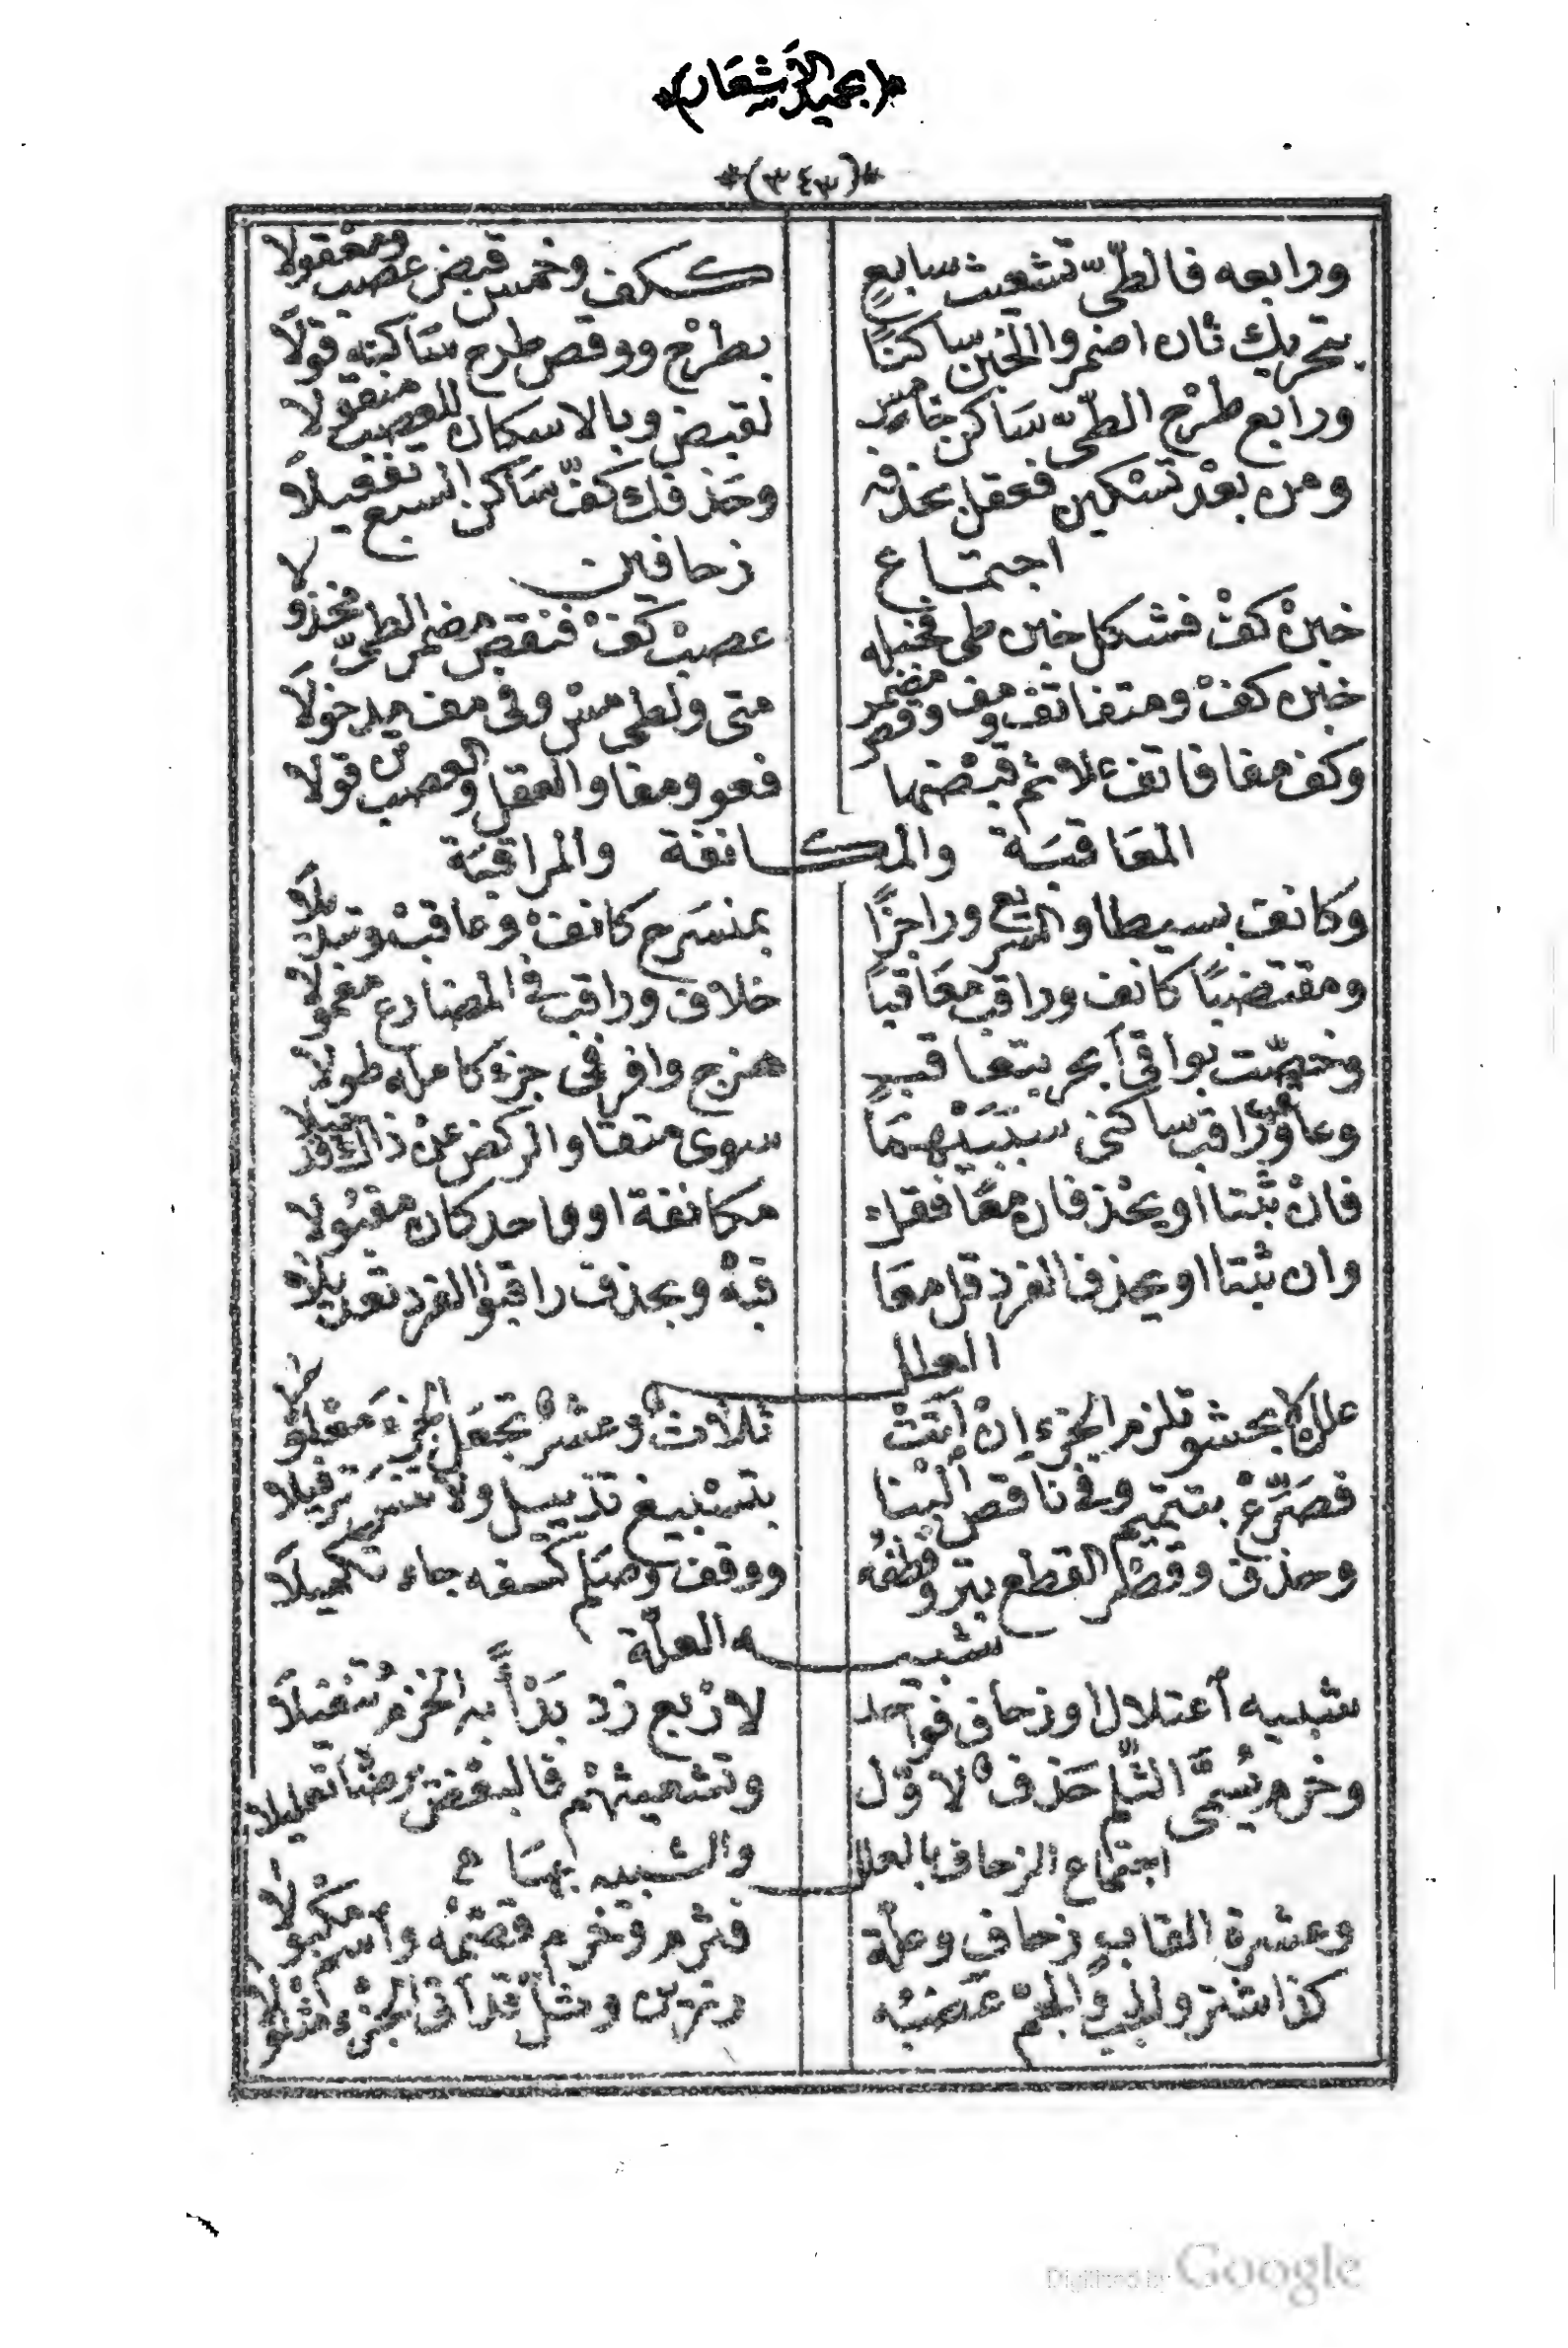 *(بحميد الأشعار)*
*(٣٤٣)*
ورابعه فالطّىّ تشعيث سابعٍ ككف وخمس قبض عصب ومعقولا
بتحريك ثان اضمروا الخبن ساكنًا بطرْح ووقص طرح ساكنه قولًا
ورابع طرْح الطّىّ سَاكن خامس لقبض وبالاسكان للعصب منقولا
ومن بعْد تسْكين فعقل بحذفه وحَذفك كفّ سَاكن السبع تفعيلًا
اجتماع زحافين
خبنْ كفْ فشكل خبن طى فخبله عصبْ كفْ فنقص مضمر الطىّ مخذولا
خبن كفْ ومتفا تفْ ومف وقص مضمر متى ولطى مسْ وفى مف مدخولًا
وكف مفا فاتفْ لا ثم قبْضها فعو ومفا والعقل والعصب قولا
المعَاقبَة والمكانفة والمراقبَة
وكانف بسيطا والسريع وراجزًا بمنسَرح كانفْ وعاقبْ وتبدِيلَا
ومقتضبًا كانف وراقب معَاقبًا خلاف وراقب فى المضارع مفمولًا
وخصّت بواقى أبحر بتعاقبٍ هزج وافر فى جزء كامله طولا
وعاقب وراقب ساكنى سبَبَيْهمَا سوى متفا والركض عنْ ذاك قد قيلا
فانْ ثبتا او يحْذفان معًا فقل مكانفة او واحد كان مقبُولا
وان ثبتا او يحذفا لفرد قل معَا قبهْ وبحذف راقبوا الفرد تعْديلًا
العلل
علل لا بحشو تلزم الجزء إنْ أتتْ ثلاث وعشْر تجعَل الجزء مَعْلولَا
فصَرّعْ بتتميم وفى ناقص ألبنا بتسْبيغ تذييل ولا تنسَ ترفيلا
وحذف وقصْر القطع بتر وقطفُه ووقف وصَلم كشفه جاء تكميلَا
شبه العلّة
شبيه أعتلال او زحاف فواحد لارْبع زد بَدْأً به الخزم تُنفيلَا
وخرم يُسمَّى الثّلم حَذفٌ لاوّل وتشعيثهمْ فالبعْض عَرضًا تعليلا
اجتماع الزحاف بالعلل والشبيه بهَا م
وعشرة القاب زحاف وعلّة فثرم وخرم قصمُه واسم مكْبولًا
كذا شتر والجمّ عَضبُه
Digitized by Google